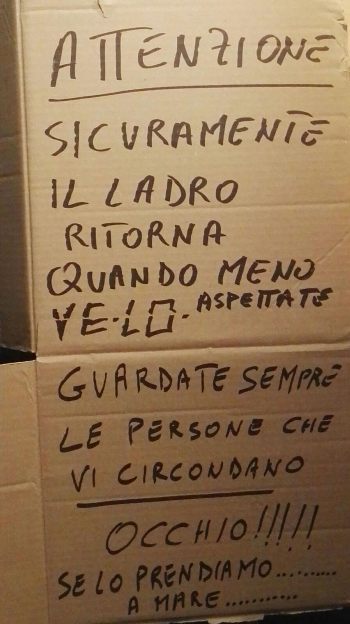 ATTENZIONE
SICURAMENTE
IL LADRO
RITORNA
QUANDO MENO
VE-LO- ASPETTATE
GUARDATE SEMPRE
LE PERSONE CHE
VI CIRCONDANO
OCCHIO!!!!!
SE LO PRENDIAMO..........
A MARE...........